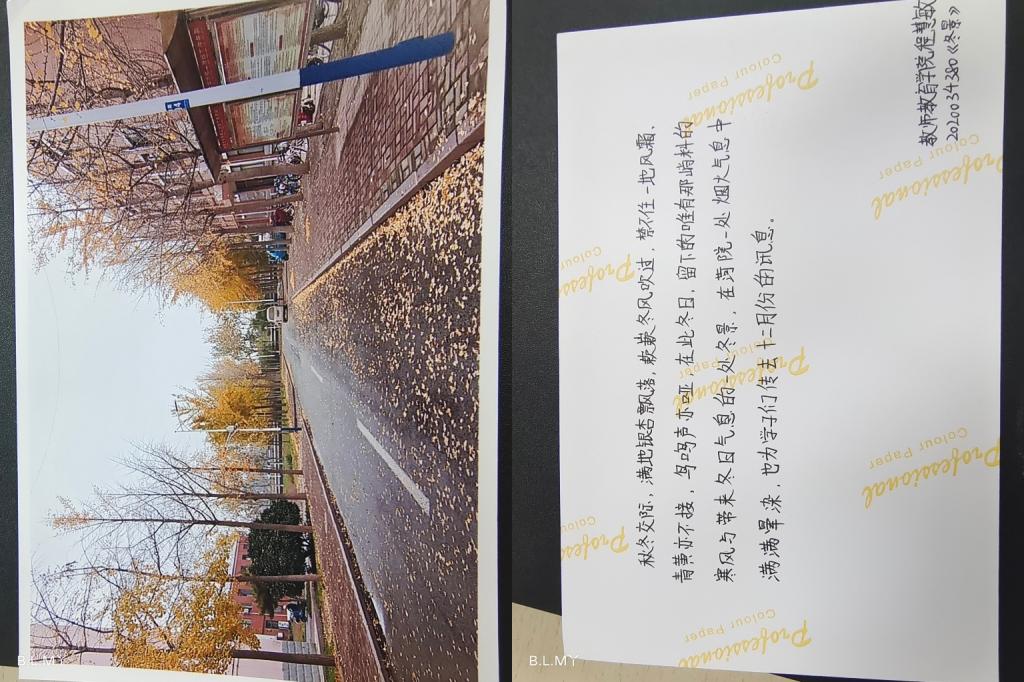 秋冬交际，满地银杏飘落，簌簌冬风吹过，禁不住一地风霜、
青黄亦不接，鸟鸣声亦哑，在此冬日，留下的唯有那峭料的
寒风与带来冬日气息的一处冬景，在菏院一处烟火气息中
满满晕染，也为学子们传去十二月份的讯息。
教师教育学院程慧敏
2020034380《冬景》
Professional
Colour Paper
Professional
Colour Paper
Professional
Colour Paper
Professional
Colour Paper
Professional
Colour Paper
B.L.MY
B.L.MY